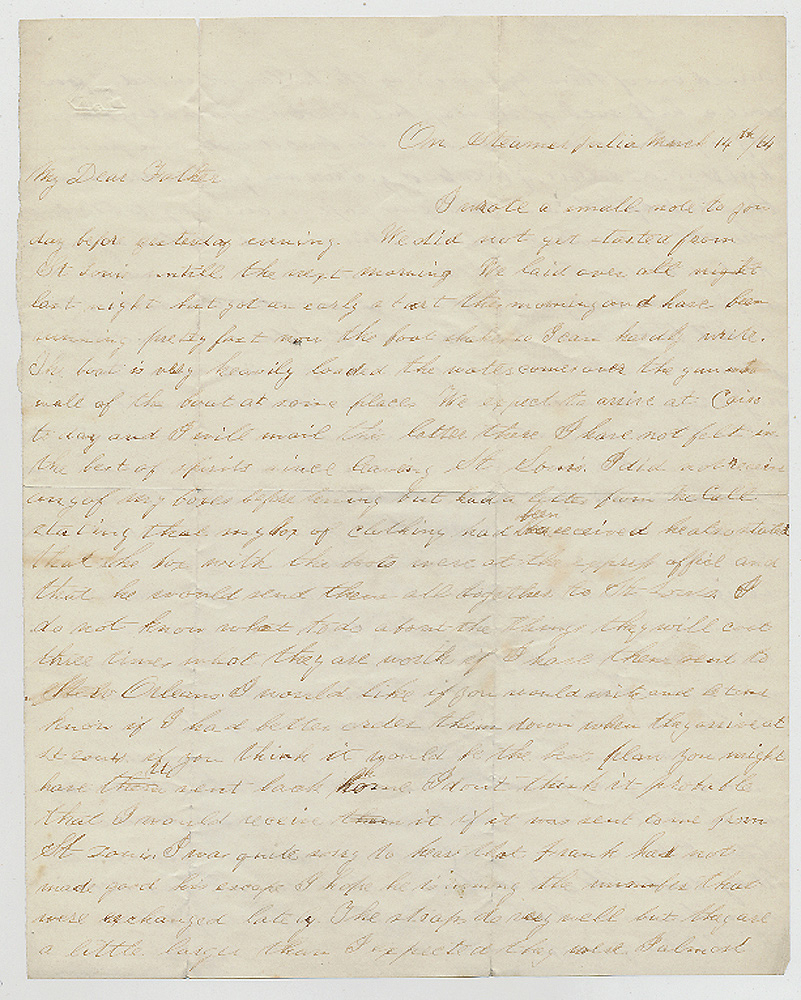 On Steamer Julia March 14th/64
My Dear Father
I wrote a small note to you
day before yesterday evening. We did not get started from
St Louis untill the next morning We laid over all night
last night but got an early start this morning and have been
running pretty fast now the boat shakes so I can hardly write.
The boat is very heavily loaded the water comes over the gun
wall of the boat at some places We expect to arrive at Cairo
to day and I will mail this letter there I have not felt in
the best of spirits since leaving St Louis. I did not receive
any of my boxes before leaving but had a letter from McCall
stating that my box of clothing had been received he also stated
that the box with the boots were at the express office and
that he would send them all together to St Louis I
do not know what to do about the things they will cost
three times what they are worth if I have them sent to
New Orleans I would like if you would write and let me
know if I had better order them down when they arrive at
St Louis. if you think it would be the best plan you might
have it sent back home I dont think it probable
that I would receive it if it was sent to me from
St Louis, I was quite sorry to hear that Frank had not
made good his escape I hope he is among the number that
were exchanged lately. The straps do very well but they are
a little larger than I expected they were. I almost